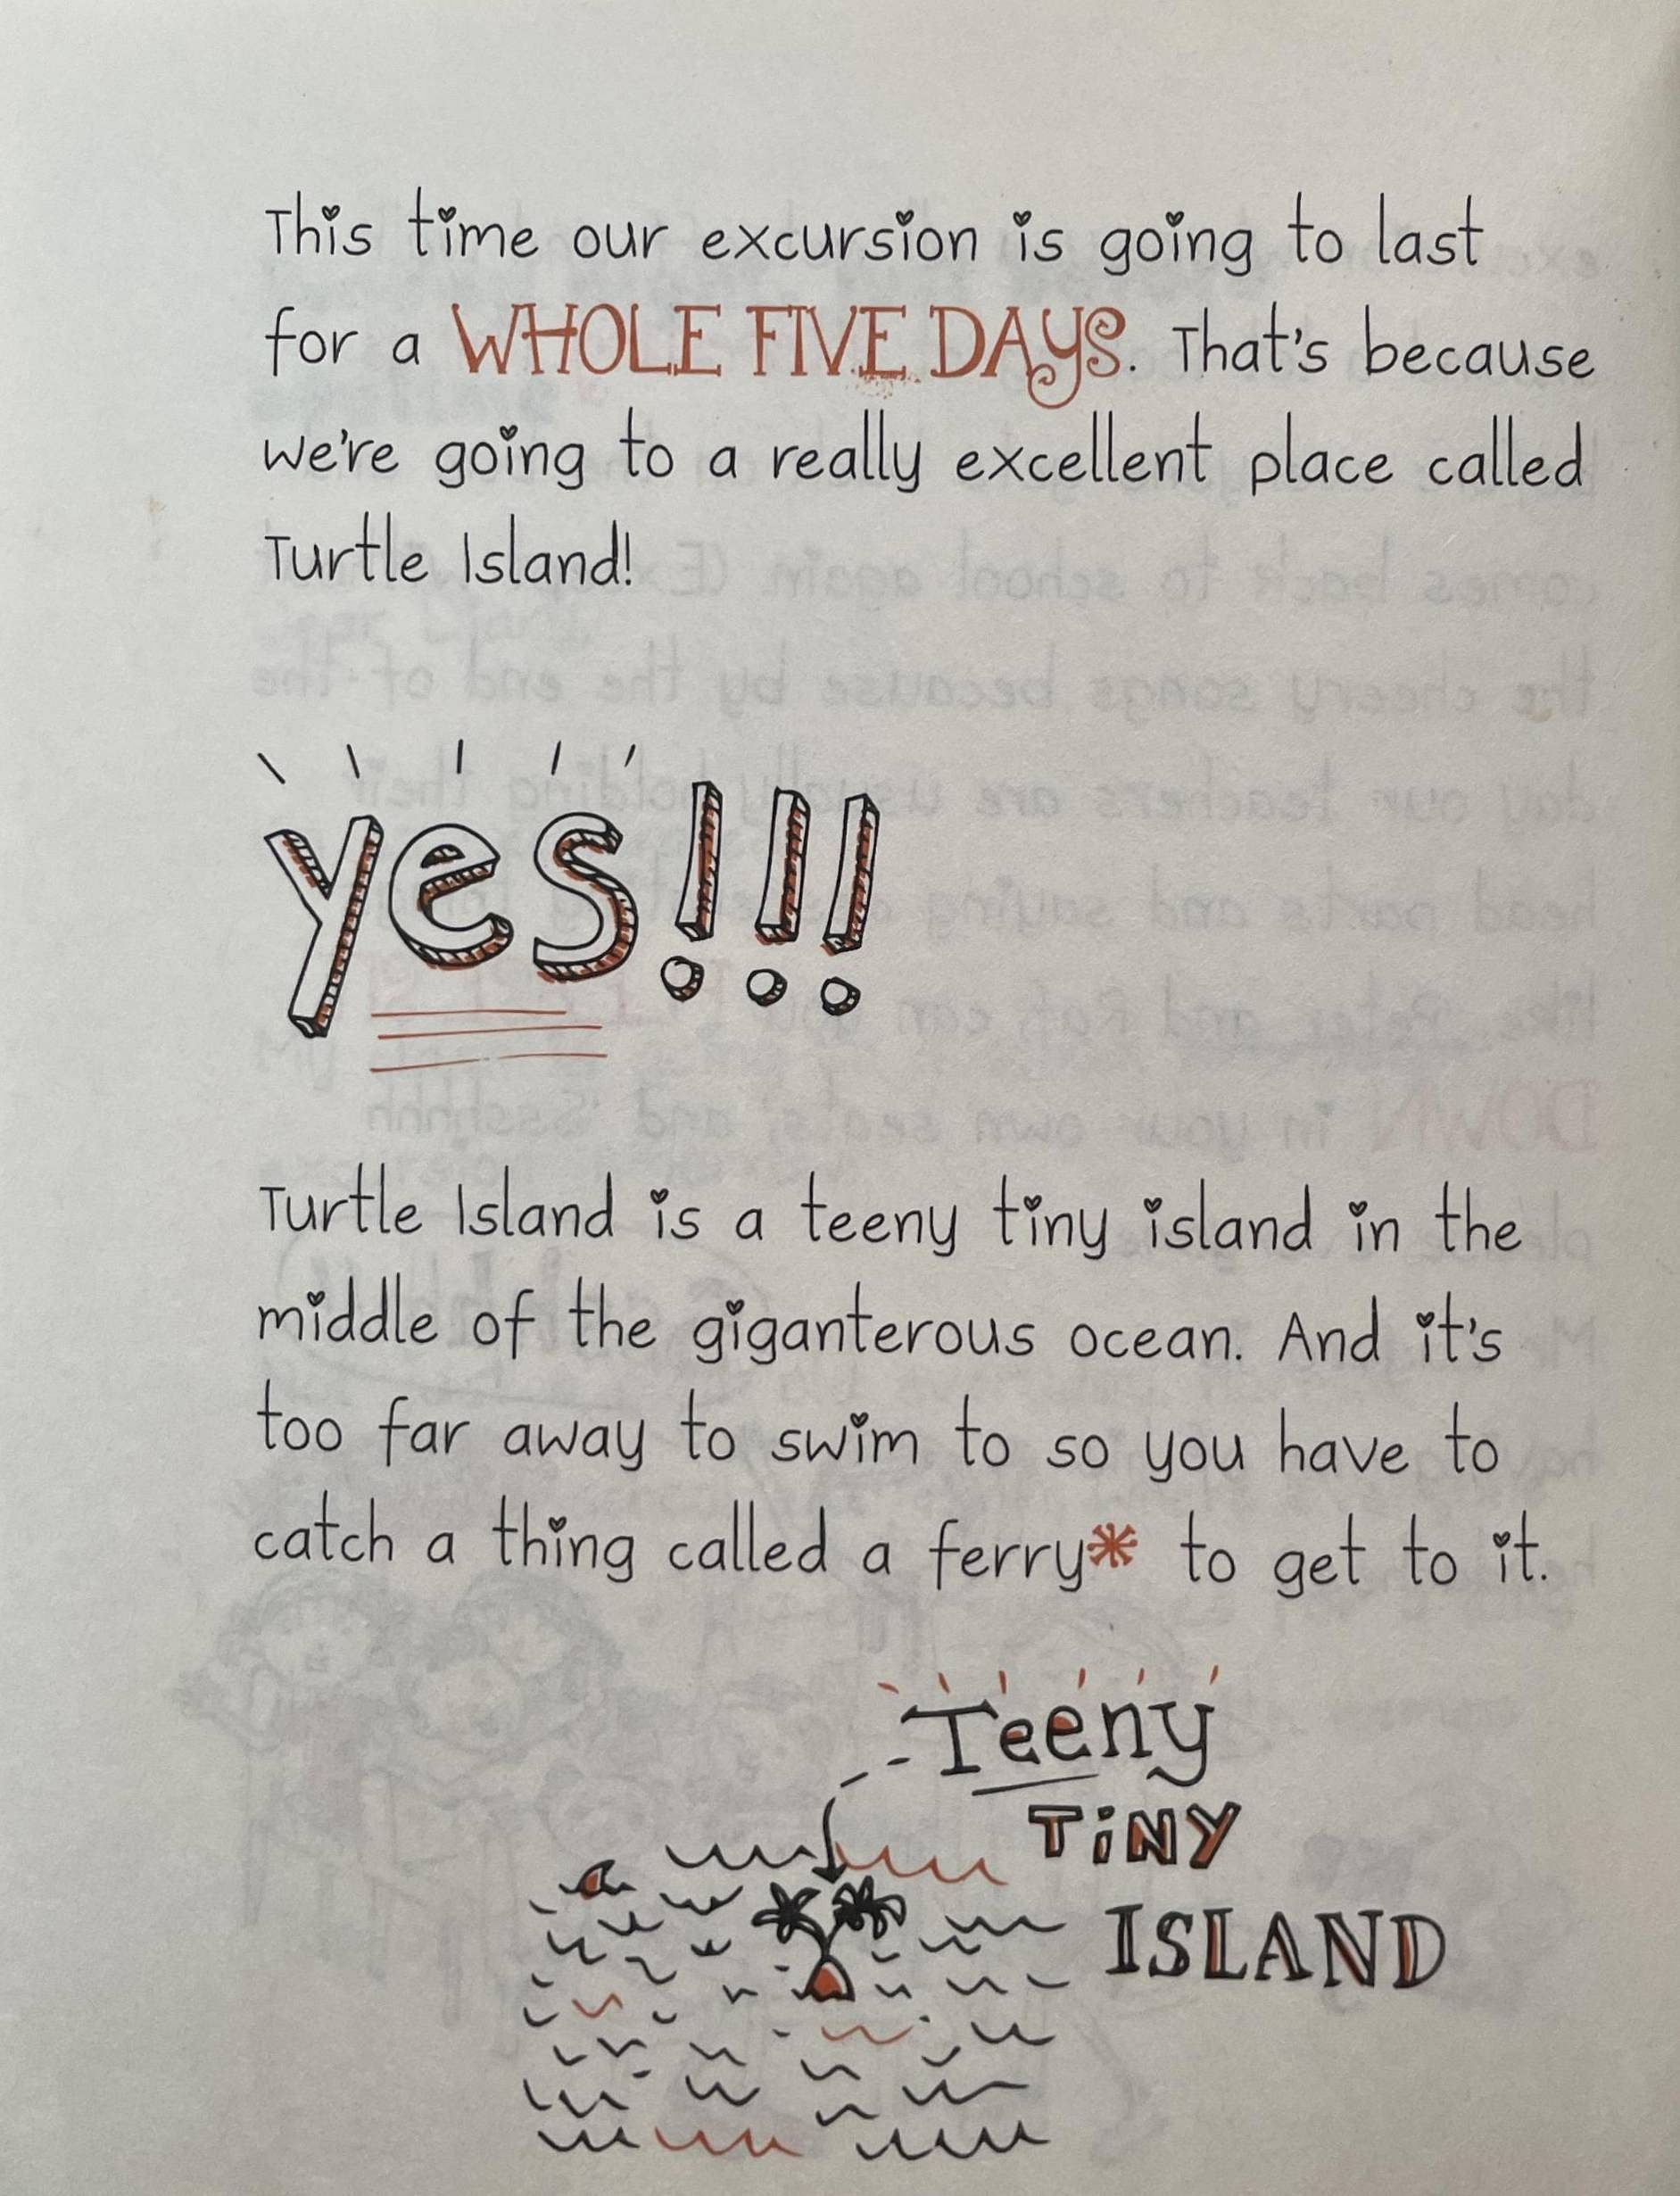 This time our excursion is going to last
for a WHOLE FIVE DAYS. That's because
we're going to a really excellent place called
Turtle Island!
yes!!!
Turtle Island is a teeny tiny island in the
middle of the giganterous ocean. And it's
too far away to swim to so you have to
catch a thing called a ferry* to get to it.
Teeny
TiNY
ISLAND